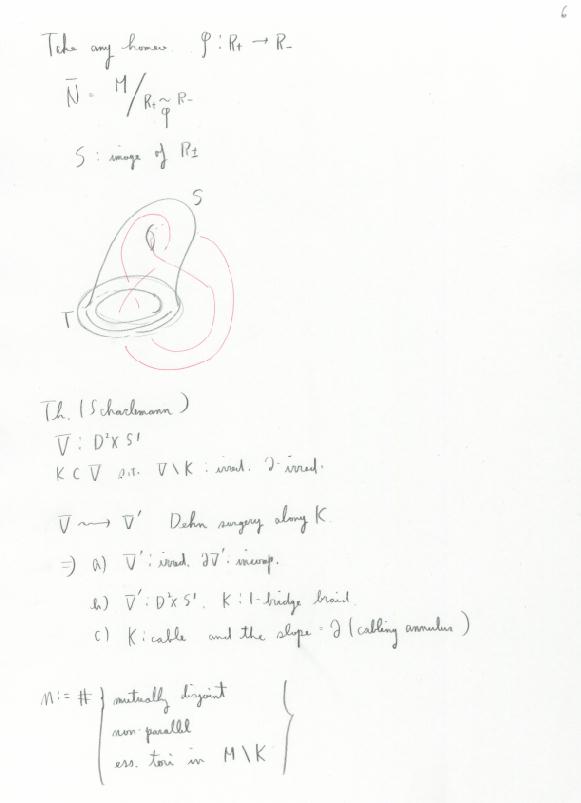 6
Take any homeo. φ : R+ → R-
N̄ = M / R+ ~φ R-
S : image of R±
S
T
Th. (Scharlemann)
V̄ : D²×S¹
K ⊂ V̄ s.t. V̄\K : irred. ∂-irred.
V̄ ⇝ V̄' Dehn surgery along K.
⇒ a) V̄' : irred. ∂V̄' : incomp.
b) V̄' : D²×S¹. K : 1-bridge braid.
c) K : cable and the slope = ∂(cabling annulus)
n := # { mutually disjoint
non-parallel
ess. tori in M\K }